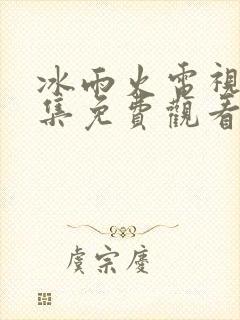 冰雨火電視
集免費觀看
虞宗慶